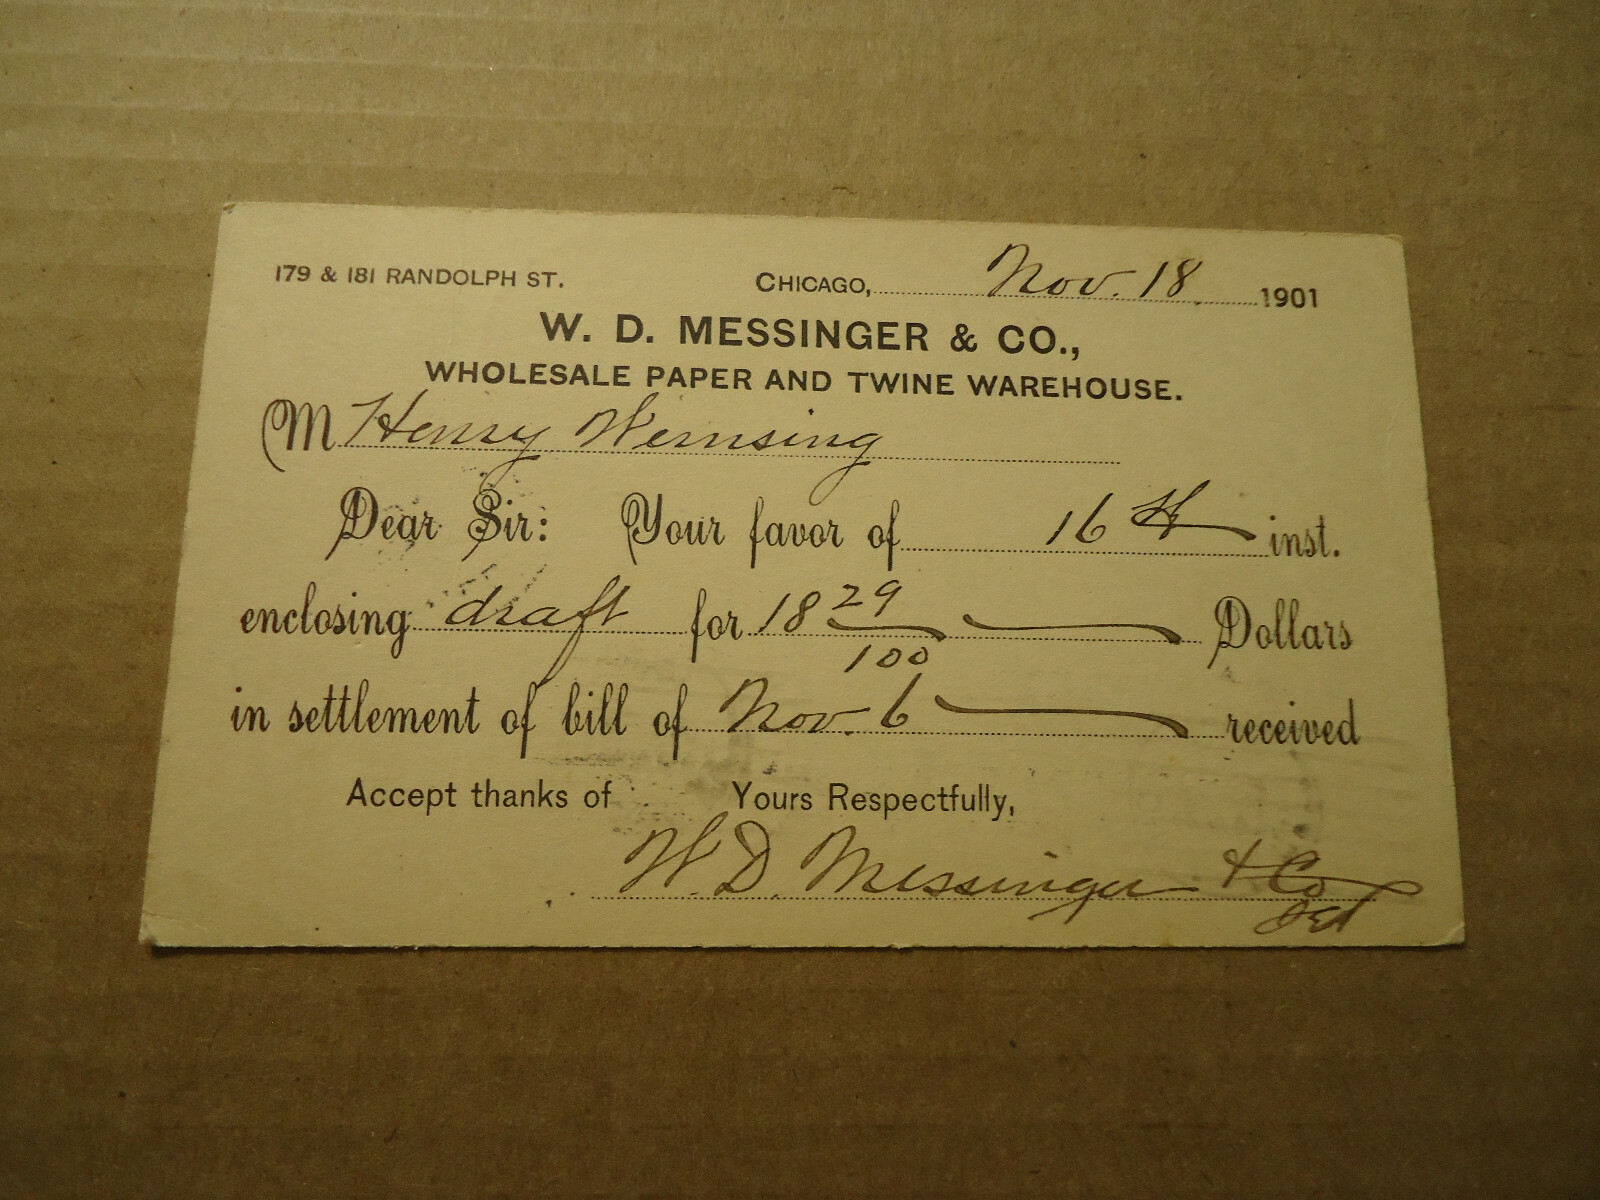 179 & 181 RANDOLPH ST. CHICAGO, Nov. 18 1901
W. D. MESSINGER & CO.,
WHOLESALE PAPER AND TWINE WAREHOUSE.
M Henry Wernsing
Dear Sir: Your favor of 16th inst.
enclosing draft for 18 29/100 Dollars
in settlement of bill of Nov. 6 received
Accept thanks of Yours Respectfully,
W. D. Messinger & Co